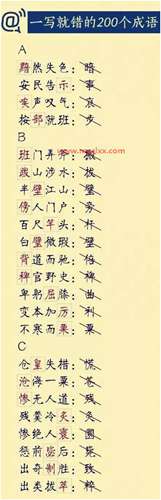 一写就错的200个成语
A
黯然失色：
安民告示：事
唉声叹气：哀
按部就班：步
B
班门弄斧：搬
跋山涉水：拔
半壁江山：璧
傍人门户：旁
百尺竿头：杆
白璧微瑕：壁
背道而驰：弛
稗官野史：裨
卑躬屈膝：曲
变本加厉：利
不寒而栗：粟
C
仓皇失措：慌
沧海一粟：苍
惨无人道：残
残羹冷炙：灸
惨绝人寰：圜
惩前毖后：毙
出奇制胜：致
出类拔萃：粹